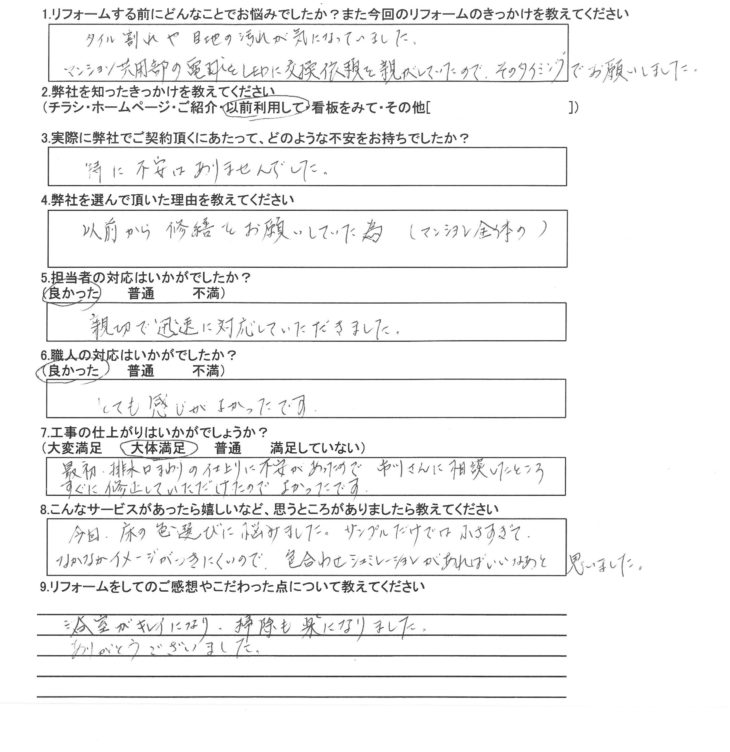 1.リフォームする前にどんなことでお悩みでしたか？また今回のリフォームのきっかけを教えてください
タイル割れや目地の汚れが気になっていました。
マンション共用部の電球をLEDに交換依頼を親がしていたので、そのタイミングでお願いしました。
2.弊社を知ったきっかけを教えてください
(チラシ・ホームページ・ご紹介・以前利用して・看板をみて・その他[ ])
3.実際に弊社でご契約頂くにあたって、どのような不安をお持ちでしたか？
特に不安はありませんでした。
4.弊社を選んで頂いた理由を教えてください
以前から修繕をお願いしていた為 (マンション全体の)
5.担当者の対応はいかがでしたか？
(良かった 普通 不満)
親切で迅速に対応していただきました。
6.職人の対応はいかがでしたか？
(良かった 普通 不満)
とても感じがよかったです。
7.工事の仕上がりはいかがでしょうか？
(大変満足 大体満足 普通 満足していない)
最初、排水口まわりの仕上りに不安があったので さんに相談したところ
すぐに修正していただけたのでよかったです。
8.こんなサービスがあったら嬉しいなど、思うところがありましたら教えてください
今回、床の色選びに悩みました。サンプルだけでは小さすぎて、
なかなかイメージがつきにくいので、色合わせシュミレーションがあればいいなあと思いました。
9.リフォームをしてのご感想やこだわった点について教えてください
浴室がキレイになり、掃除も楽になりました。
ありがとうございました。